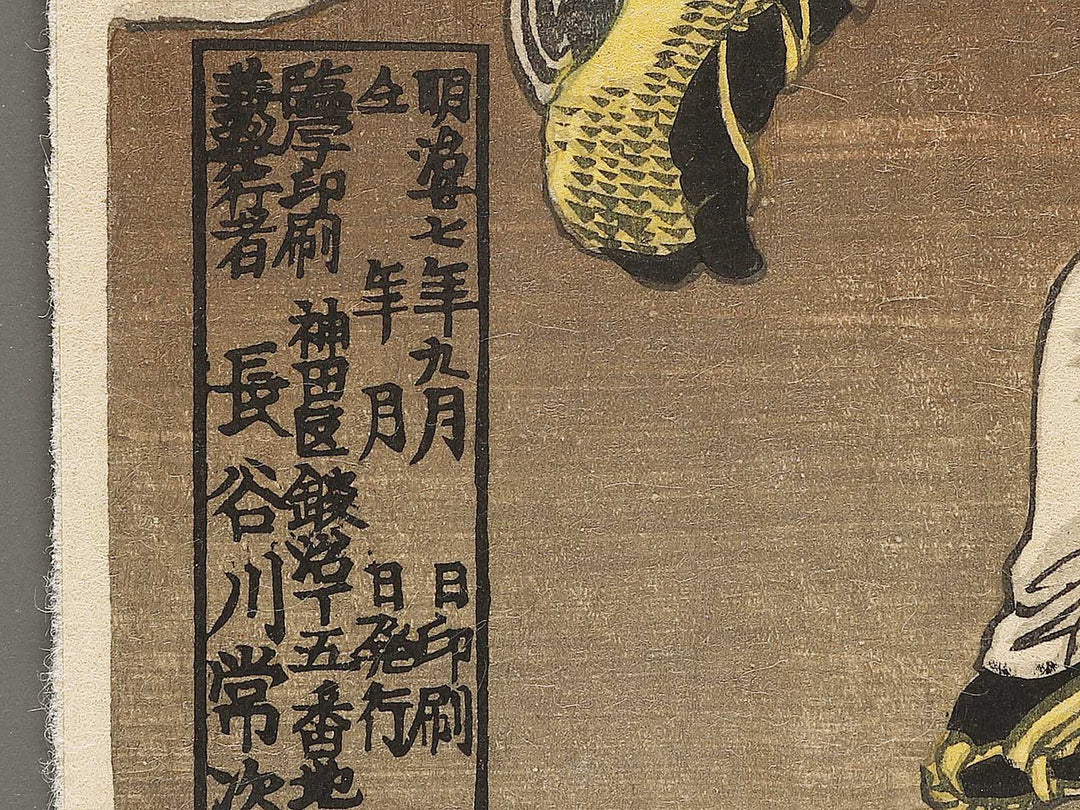 明治廿七年九月 日印刷
仝 年 月 日発行
臨写印刷 神田区鍛冶丁五番地
兼発行者 長谷川常次